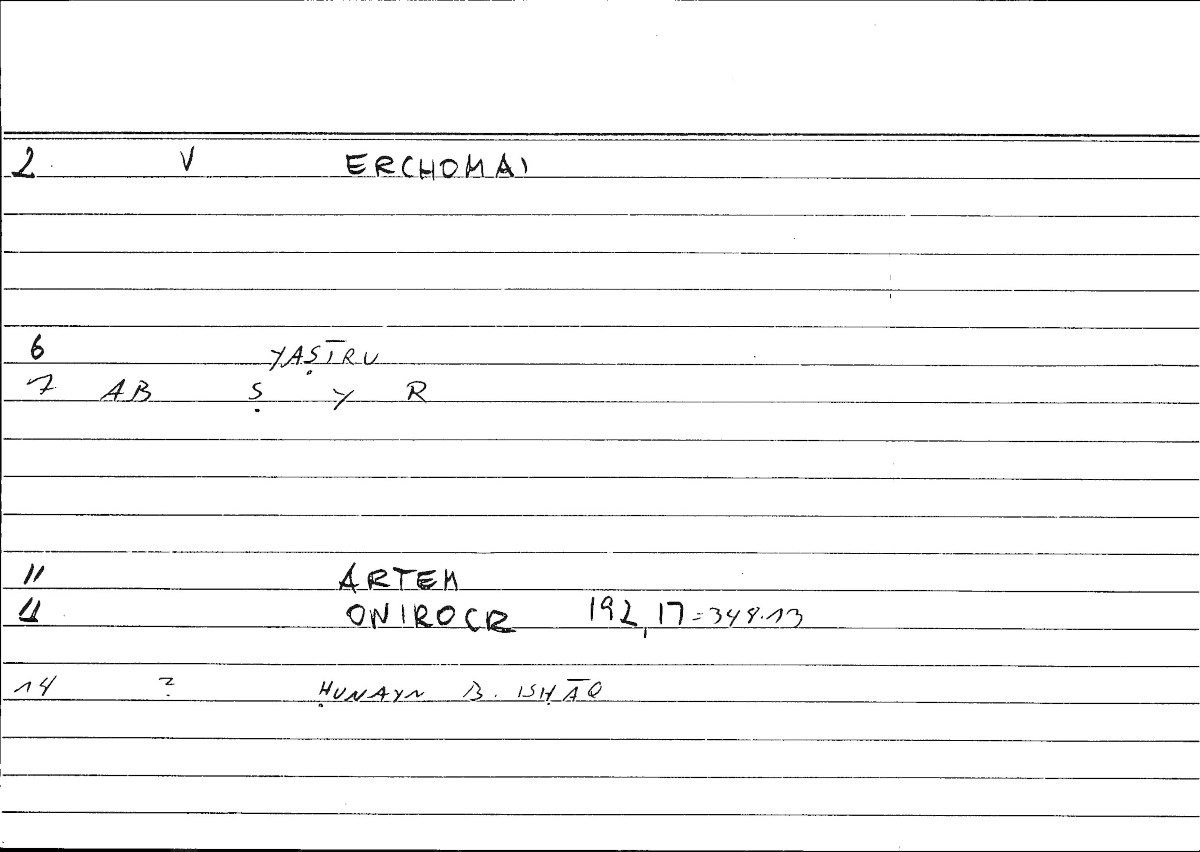 2 V ERCHOMAI
6 YAṢĪRU
7 AB Ṣ Y R
11 ARTEM
12 ONIROCR 192,17=348.13
14 ? ḤUNAYN B. ISḤĀQ